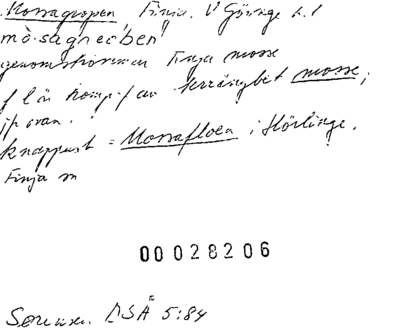 Mossagropen, Finja. V Göinge h.
måsagræben
genomströmmar Finja mosse
f l är komp. f av terrängbet mosse;
jfr ovan.
knappast = Mossafloen i Hörlinge,
Finja sn
00028206
Sørensen. DSÅ 5:84